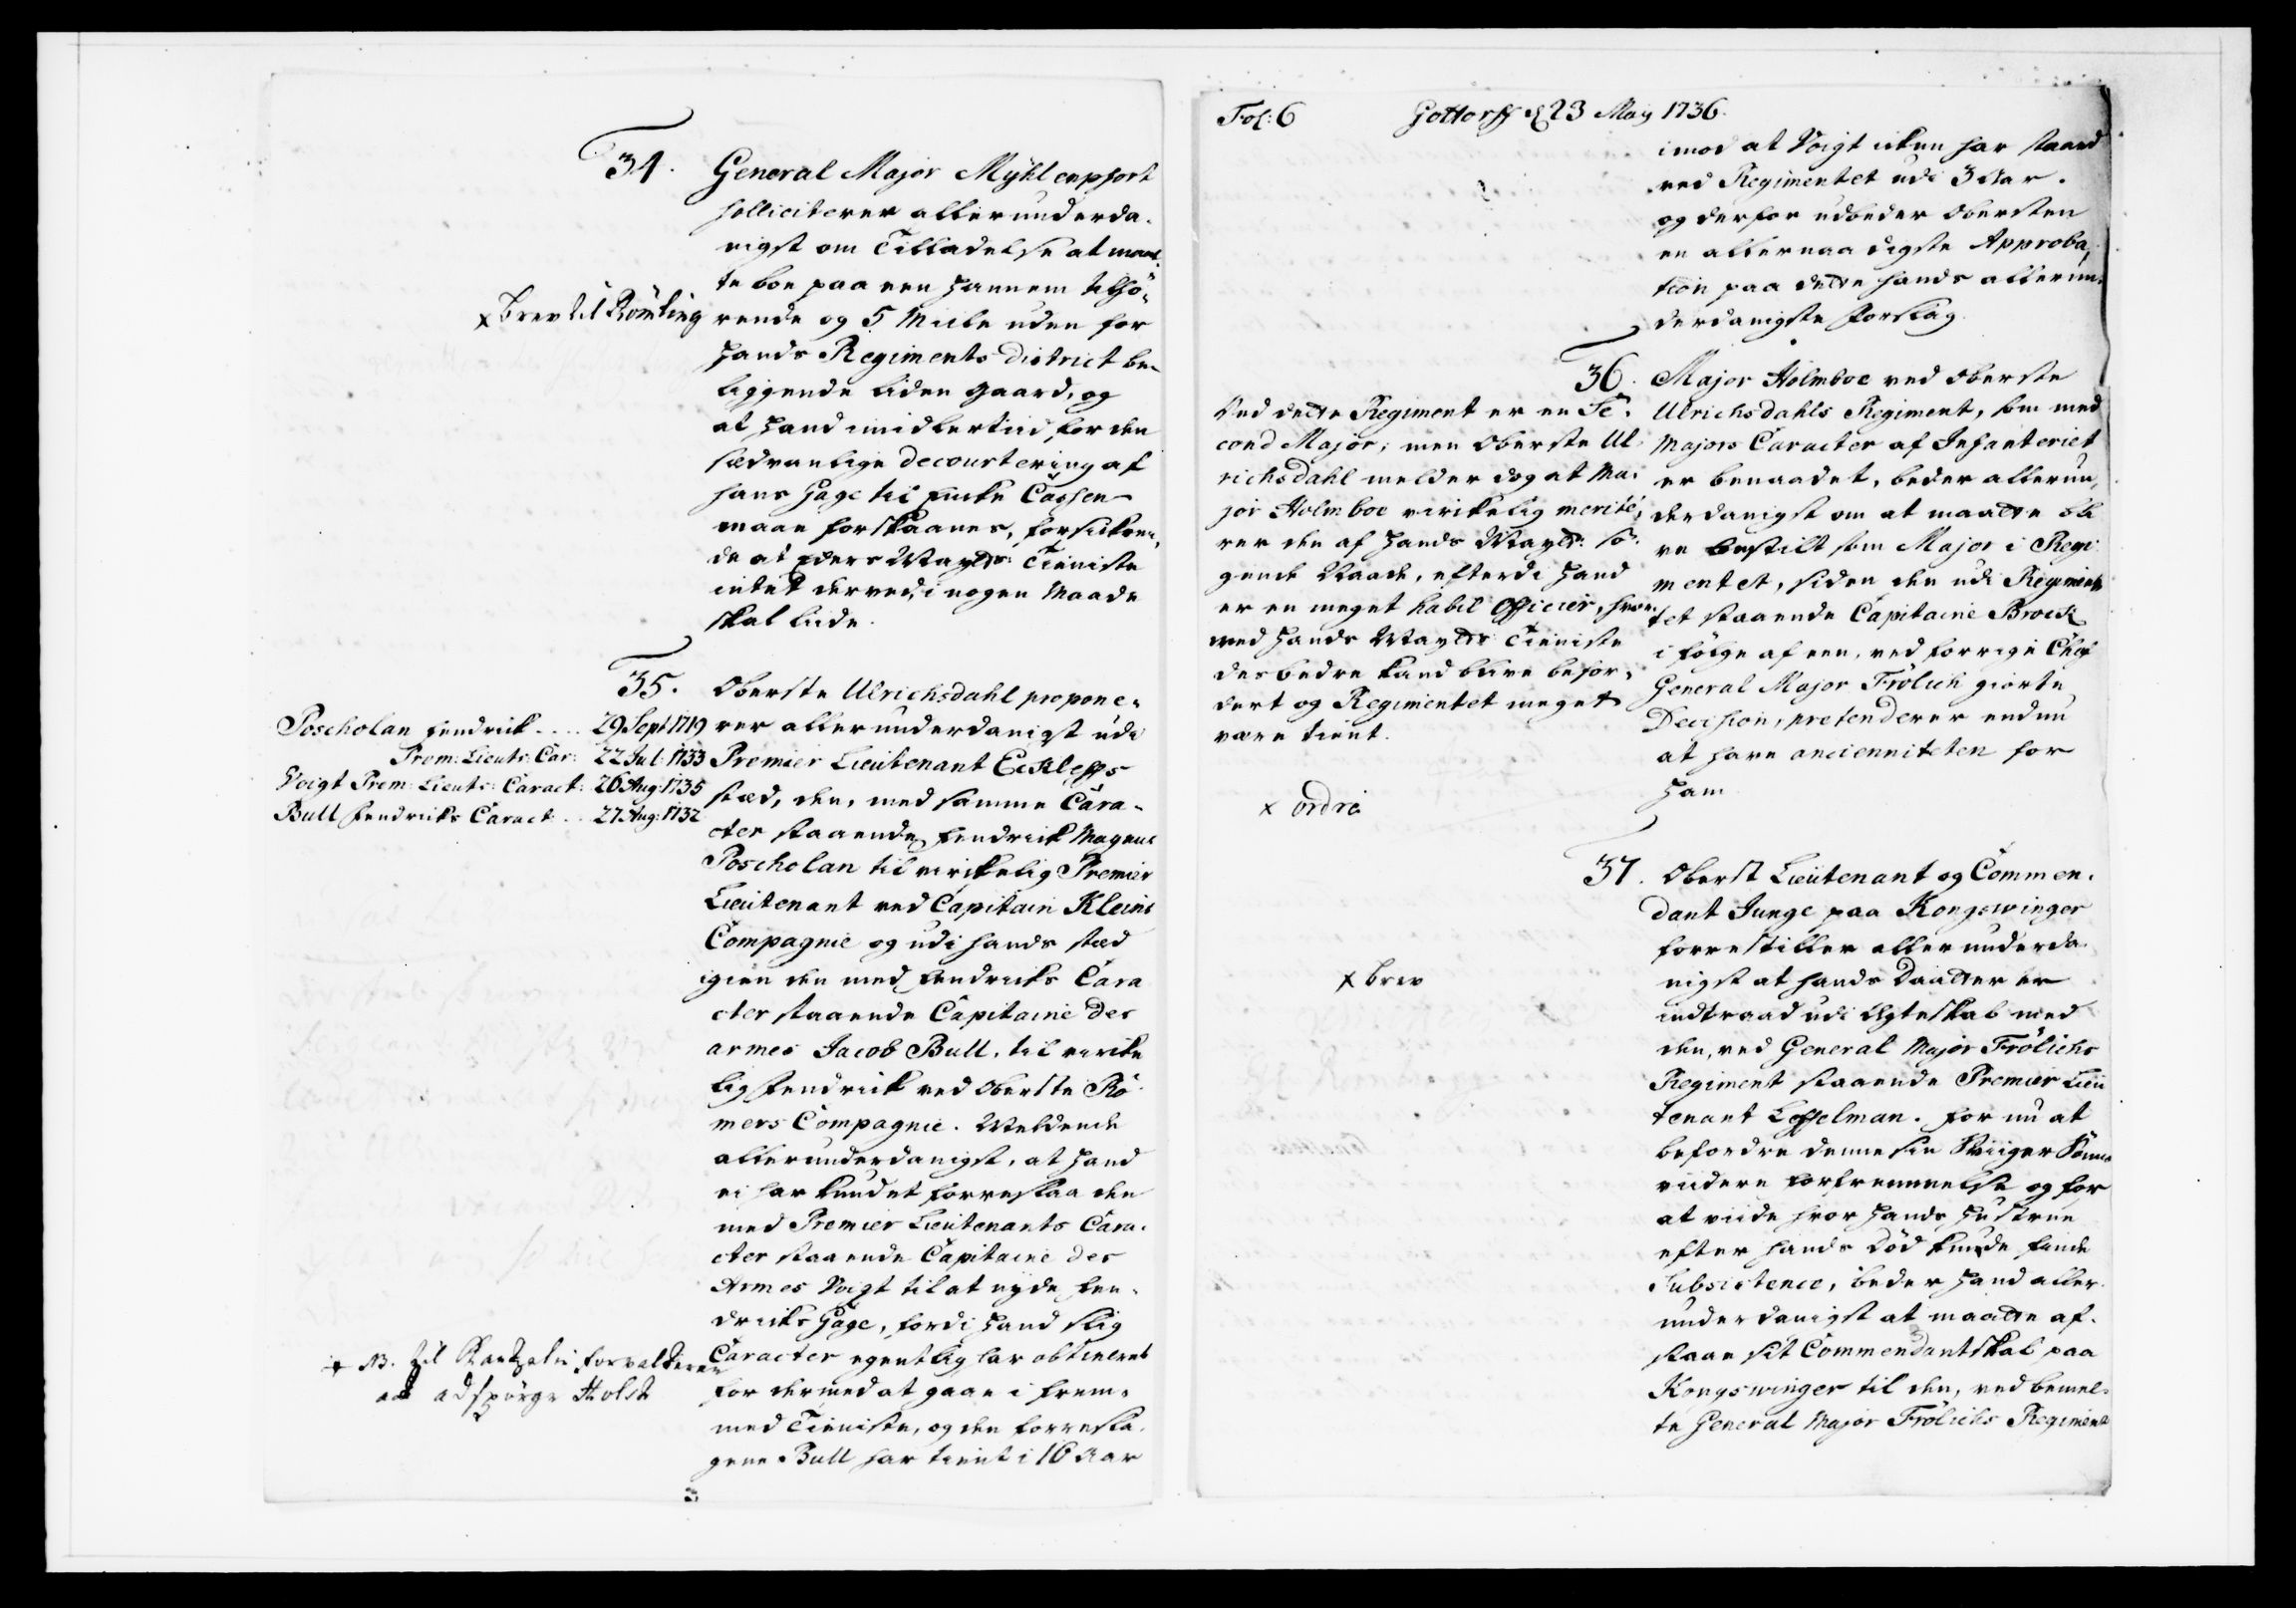 34.
General Major Mÿhlenphort
solliciterer allerunderda-
nigst om Tilladelse at maat-
te boe paa een hannem tilhö-
rende og 5 Miile uden for
hands Regiments district be-
liggende liden gaard, og
at hand imidlertiid, for den
sædvanlige decourtering af
hans gage til Cassen
maae forskaanes, forsickren-
de at Eders Maÿtts Tieniste
intet derved i nogen Maade
skal liide.
x brev til Römling
35.
Oberste Ulrichsdahl propone-
rer allerunderdanigst udi
Premier Lieutenant Eckleffs
stæd, den, med samme Cara-
cter staaende fendrick Magnus
Poscholan til virckelig Premier
Lieutenant ved Capitain Kleins
Compagnie og udi hands stæd
igien den med fendricks Cara
cter staaende Capitaine des
armes Jacob Bull, til virke
lig fendrick ved Oberste Rö
mers Compagnie. Meldende
allerunderdanigst, at hand
ei har kundet forreslaa den
med Premier Lieutenants Cara-
cter staaende Capitaine des
Armes Voigt til at nyde fen-
dricks Gage, fordi hand slig
Caracter egentlig har obtineret
for dermed at gaae i frem-
med Tieniste, og den forresla-
gene Bull har tient i 16 Aar
Poscholan fendrick .... 29 Sept 1719
Prem: Lieuts: Car: 22 Jul: 1733
Voigt Prem: Lieuts: Caract: 26 Aug: 1735
Bull fendricks Caract: .. 27 Aug: 1732
+ NB. til forvalteren
at adspörge Holst
Fol: 6 Gottorff d 23 May 1736.
imod at Voigt ickun har staaed
ved Regimentet udi 3 Aar.
og derfor udbeder Obersten
en allernaadigste Approba-
tion paa dette hands allerun-
derdanigste forslag.
36.
Major Holmboe ved Oberste
Ulrichsdahls Regiment, som med
Majors Caracter af Infanteriet
er benaadet, beder allerun-
derdanigst om at maatte bli
ve bestilt som Major i Regi
mentet, siden den udi Regimen-
tet staaende Capitaine Brock
i fölge af een, ved forrige Chef
General Major Frölich giorte
Decision, pretenderer endnu
at have ancienniteten for
ham
Ved dette Regiment er en Se-
cond Major; men Oberste Ul-
richsdahl melder dog at Ma-
jor Holmboe virckelig merite-
rer den af hands Maytt: sö-
gende Naade, efterdi hand
er en meget habil Officier, hvor
ved hands Maytts Tieniste
des bedre kand blive befor-
dert og Regimentet meget
være tient.
x ordre
37.
Oberst Lieutenant og Commen-
dant Junge paa Kongswinger
forrestiller allerunderda-
nigst at hands Daatter er
indtraad udi Ægteskab med
den, ved General Major Frölichs
Regiment staaende Premier Lieu
tenant Leffelman. for nu at
befordre denne sin Sviiger Sönns
viidere forfremmelse og for
at viide hvor hands Hustrue
efter hands död kunde finde
Subsistence, beder hand aller-
underdanigst at maatte af-
staae sit Commendantskab paa
Kongswinger til den, ved bemel-
te General Major Frölichs Regiment
x brev